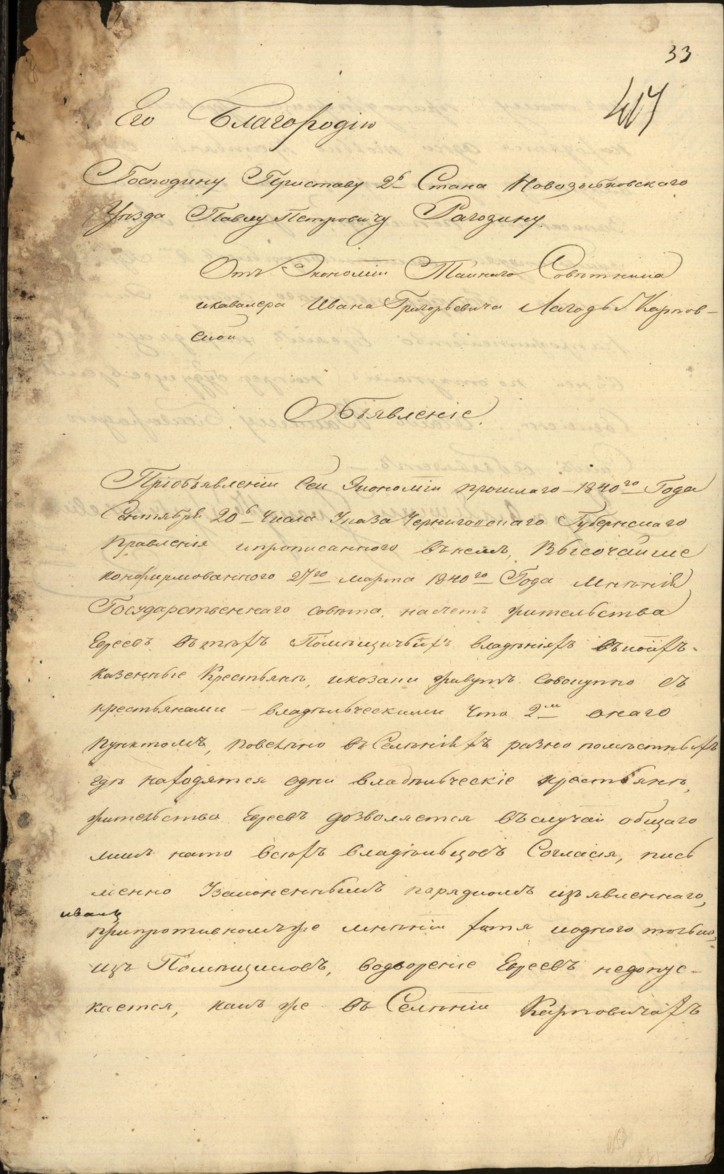 33
417
Его Благородію
Господину Приставу 2го Стана Новозыбковскаго
Уѣзда Павлу Петровичу Рагозину
Отъ Экономіи Тайнаго Совѣтника
икавалера Ивана Григорьевича Лагоды Карпов-
ской
Объявленіе.
Приобъявленіи Сей Экономіи прошлаго 1840го Года
Сентября 20го числа Указа Черниговскаго Губернскаго
Правленія ипрописаннаго внемъ, Высочайше
конфирмованнаго 27го марта 1840го Года мнѣнія
Государственнаго совѣта, насчетъ жительства
Евреевъ вътѣхъ Помѣщичьихъ владѣніяхъ вкоихъ
казенные Крестьяне, икозаки живутъ совокупно съ
крестьянами владѣльческими что 2мъ онаго
пунктомъ, повелѣно вСелѣніяхъ разно помѣстныхъ
гдѣ находятся одни владѣльческіе крестьяне,
жительство Евреевъ дозволяется въслучаи общаго
нато всѣхъ владѣльцовъ Согласія, пись
менно Узаконеннымъ порядкомъ изъявленнаго,
припротивномъже мнѣніи хотя иодного только
изъ Помѣщиковъ, водвореніе Евреевъ недопус-
кается, какъ же въ Селѣніи Карповичахъ